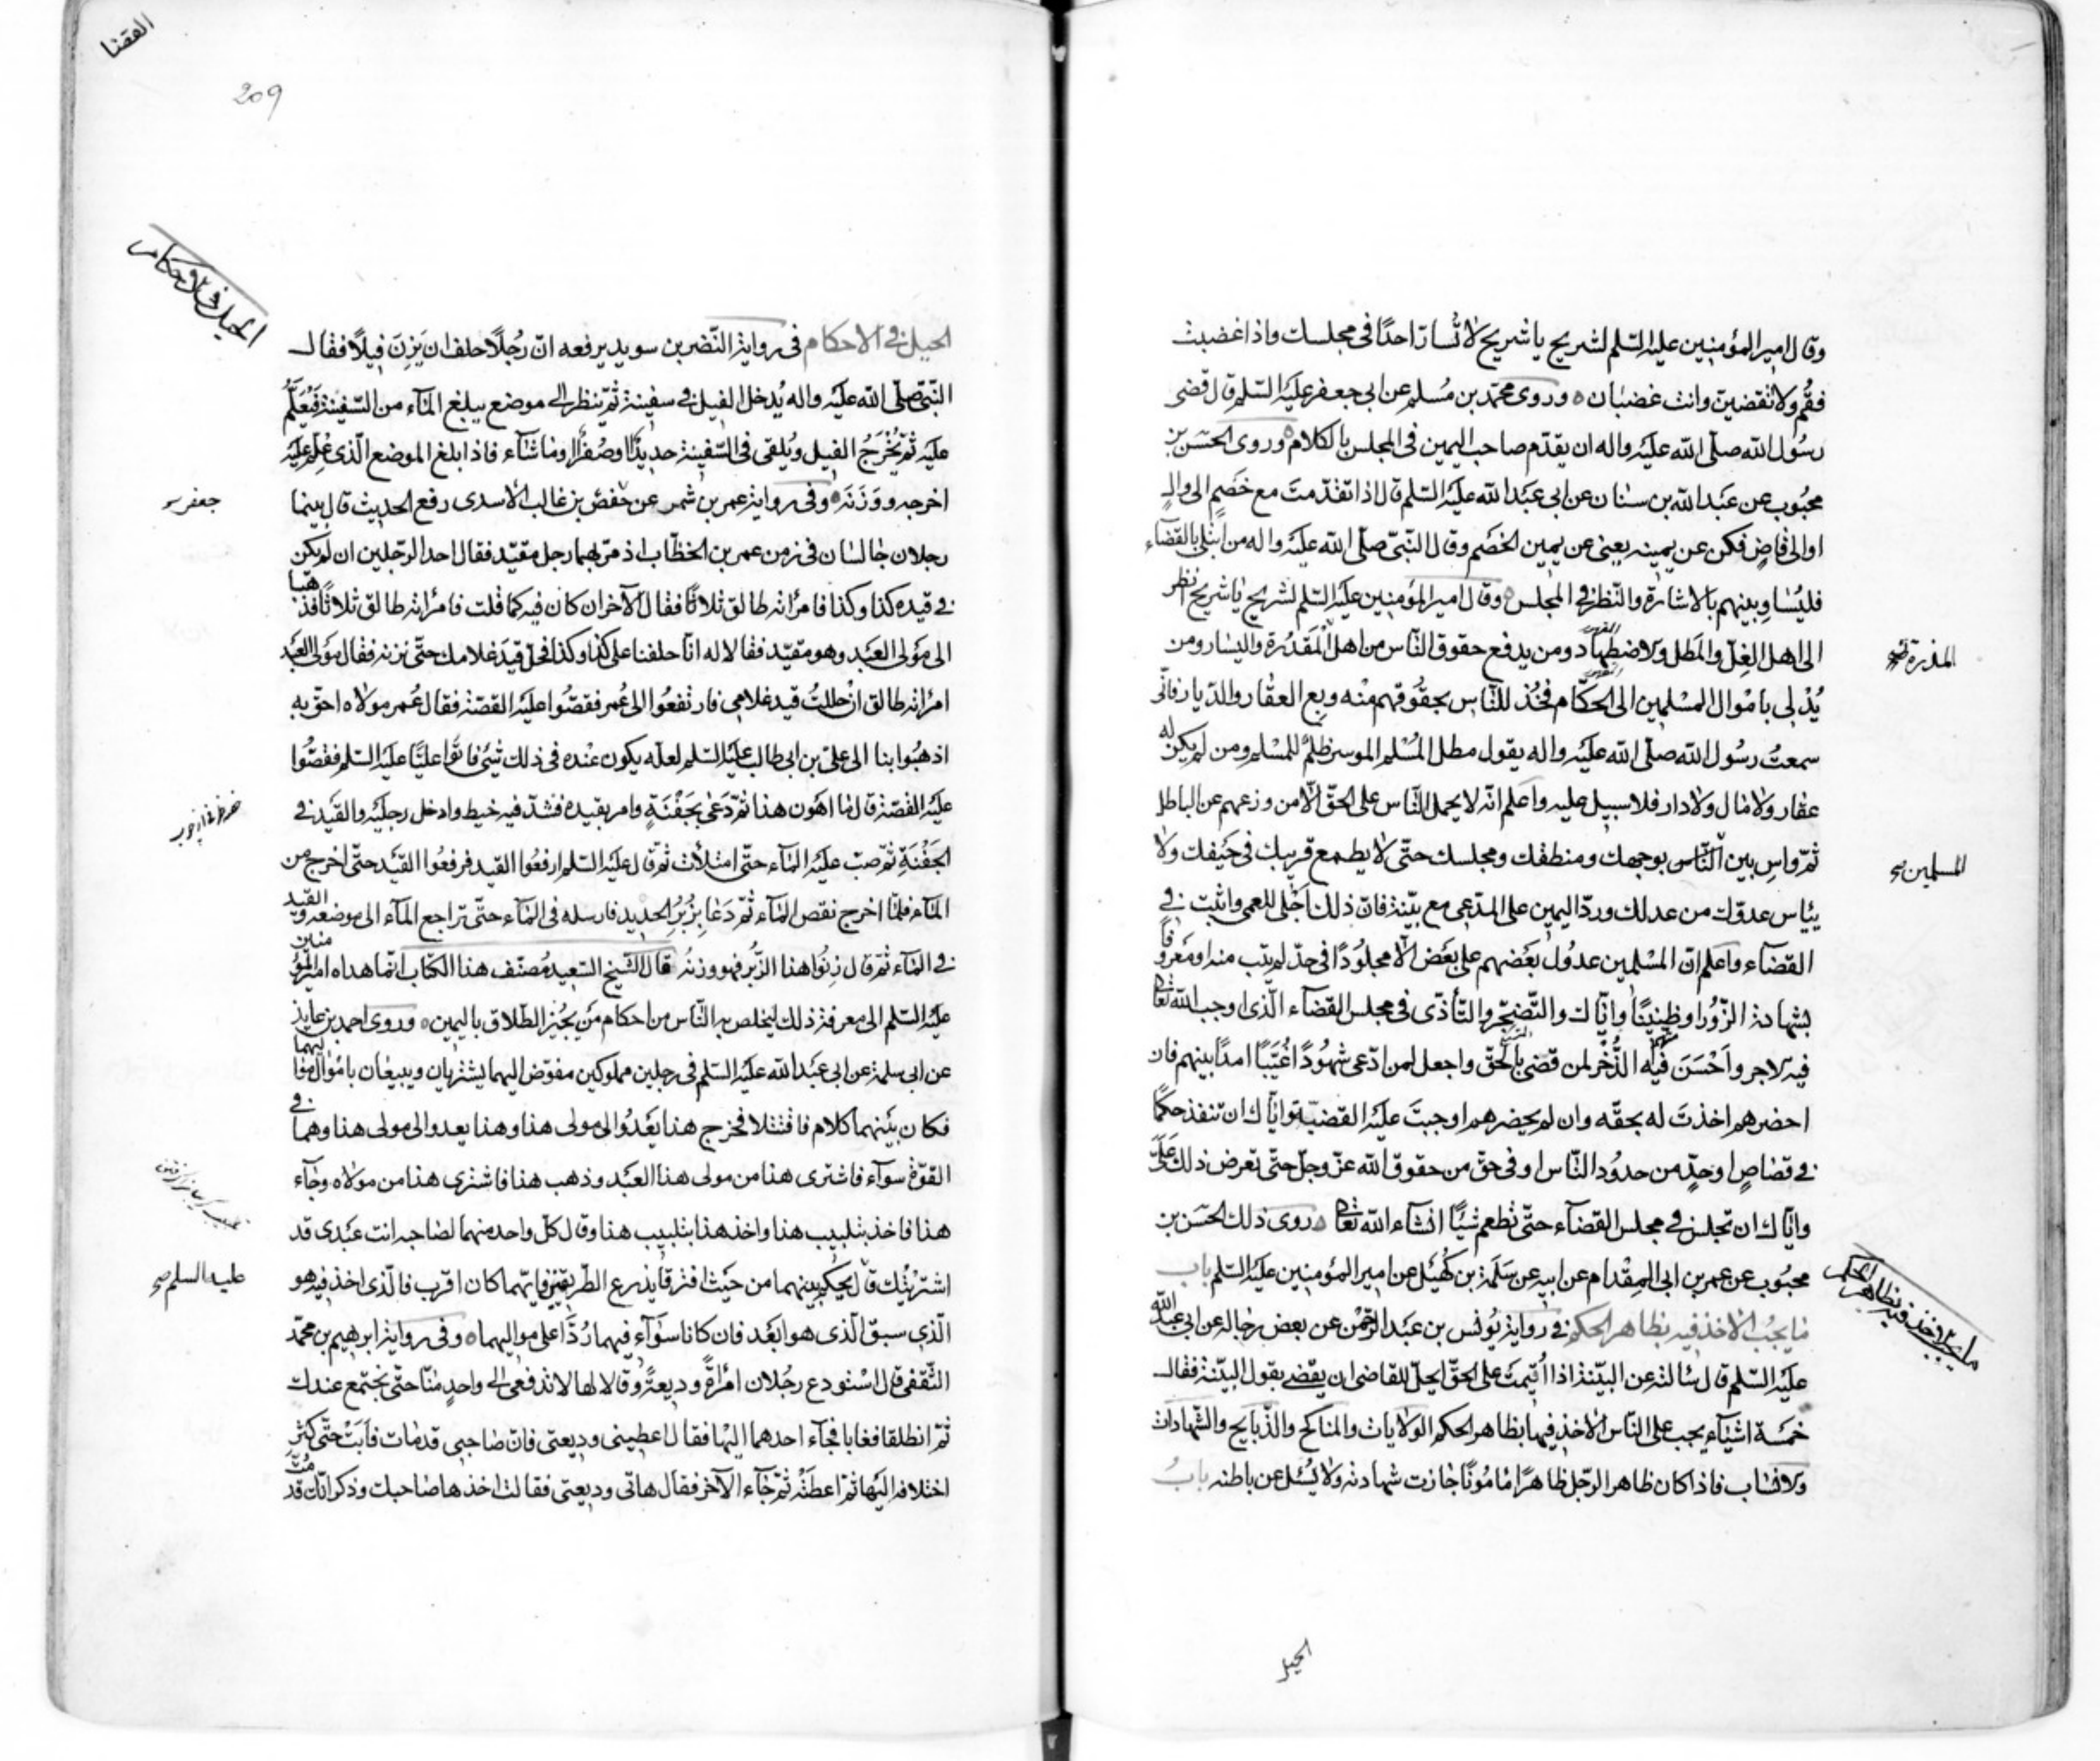 وقال امير المؤمنين عليه السّلم لشريح يا شريح لا تُسارّ احدًا فى مجلسك واذا غضبت
فقُم ولا تقضينّ وانت غضبان ٥ وروى محمّد بن مُسلم عن ابى جعفر عليه السّلم قال قضى
رسُول الله صلّى الله عليه واله ان يقدّم صاحب اليمين فى المجلس بالكلام ٥ وروى الحسَن بن
محبُوب عن عبَد الله بن سنان عن ابى عبَد الله عليَه السّلم قال اذا تقدّمتَ مع خَصَمٍ الى والٍ
او الى قاضٍ فكن عن يمينه يعنى عن يمين الخصَم وقال النّبىّ صلّى الله عليَه واله من ابتلى بالقضَاء
فليُسَاوِ بينهم بالاشارة والنّظر فى المجلس ٥ وقال امير المؤمنين عليَه السّلم لشريح يا شريح انظر
الى اهل الغِلّ والمَطل والاضطهاد ومن يدفع حقوق النّاس من اهل المَقدُرة واليسَار ومن
يُدْلى باموْال المسْلمين الى الحكّام فخُذ للنّاس بحقُوقهم منْه وبِع العقار والدّيار فانّى
سمعتُ رسُول الله صلّى الله عليَه واله يقول مطل المُسْلم الموسر ظلمٌ للمسْلم ومن لم يكن له
عقار ولا مال ولا دار فلا سبيل عليه واعلم انّه لا يحمل النّاس على الحقّ الّا من وزعهم عن الباطل
ثمّ واسِ بين النّاس بوجهك ومنطقك ومجلسك حتّى لا يطمع قريبك فى حَيفك ولا
ييئاس عدوّك من عدلك وردّ اليمين على المدّعى مع بيّنة فانّ ذلك اَجْلى للعمى واثبت فى
القضآء واعلم انّ المسْلمين عدُول بعَضهم على بعَض الّا مجلوُدًا فى حدّ لم يتب منه او معَروفًا
بشهادة الزّوُر او ظنينًا وايّاك والتّضجّر والتّأذّى فى مجلس القضآء الّذى اوجب الله تعالى
فيه الاجر واَحْسَنَ فيه الذُّخر لمن قضى بالحقّ واجعل لمن ادّعى شهُودًا غُيّبًا امدًا بينهم فان
احضرهم اخذتَ له بحقّه وان لم يحضرهم اوجبتَ عليَه القضيّة وايّاك ان تنفذ حكمًا
فى قصَاصٍ او حدٍّ من حدوُد النّاس او فى حقّ من حقوق الله عزّ وجلّ حتّى تعرض ذلك علَىّ
وايّاك ان تجلس فى مجلس القضآء حتّى تطعم شيئًا انشآء الله تعالى ٥ روى ذلك الحسَن بن
محبُوب عن عمر بن ابى المِقْدام عن ابيه عن سَلَمة بن كُهَيَل عن امير المؤمنين عليَه السّلم باب
ما يجبُ الاخذ فيه بظاهر الحكم فى رواية يوُنس بن عبَد الرّحمْن عن بعض رجاله عن ابى عبد الله
عليَه السّلم قال سَالته عن البيّنة اذا اُقيمت على الحقّ ايحلّ للقاضى ان يقضى بقول البيّنة فقال
خمسَة اشيَآء يجب على النّاس الاخذ فيها بظاهر الحكم الولايات والمناكح والذّبايح والشّهادات
والانساب فاذا كان ظاهر الرّجل ظاهرًا مامُونًا جازت شهادته ولا يُسئل عن باطنه بابُ
المسلمين
ما يجب الاخذ فيه بظاهر الحكم
الحيل
القضا
209
الحيل فى الاحكام
الحيل فى الاحكام فى رواية النّضر بن سويد يرفعه انّ رجُلًا حلف ان يَزِنَ فيلًا فقال
النّبىّ صلّى الله عليَه واله يُدخل الفيل فى سفينة ثمّ ينظر الى موضع يبلغ المآء من السّفينة فَيُعَلَّمُ
عليَه ثمّ يُخْرَجُ الفيل ويُلقى فى السّفينة حديدًا او صُفرًا او ما شآء فاذا بلغ الموضع الّذى عُلِّم عليَه
اخرجه ووَزَنَه ٥ وفى رواية عمر بن شمر عن حفص بن غالب الاسدى رفع الحديث قال بينما
رجلان جالسَان فى زمن عمر بن الخطّاب اذ مرّ بهما رجل مقيّد فقال احد الرّجلين ان لم يكن
فى قيده كذا وكذا فامراته طالق ثلاثًا فقال الآخر ان كان فيه كما قلت فامراته طالق ثلاثًا فذهبا
الى موَلى العبَد وهو مقيّد فقالا له انّا حلفنا على كذا وكذا فحلّ قيَد غلامك حتّى نزنه فقال موَلى العبَد
امراته طالق انْ حللتُ قيد غلامى فارتفعُوا الى عُمر فقصّوُا عليَه القصّة فقال عُمر مولاه احقّ به
اذهبُوا بنا الى علىّ بن ابى طالب عليَه السّلم لعلّه يكون عنْده فى ذلك شَئ فاتَوا عليًّا عليَه السّلم فقصّوُا
عليَه القصّة قال ما اهَون هذا ثمّ دَعَى بجَفْنَةٍ وامر بقيده فشدّ فيه خيط وادخل رجليَه والقيَد فى
الجَفْنَةِ ثمّ صبّ عليَه المآء حتّى امتلأت ثمّ قال عليَه السّلم ارفعُوا القيد فرفعُوا القيَد حتّى اخرج من
المآء فلمّا اخرج نقص المآء ثمّ دَعَا بِزُبُرُ الحديد فارسله فى المآء حتّى تراجع المآء الى موضعه والقيد
فى المآء ثمّ قال زِنُوا هذا الزّبُر فهو وزنهُ قال الشّيخ السّعيد مُصنّف هذا الكتاب انّما هداه امير المؤمنين
عليَه السّلم الى معرفة ذلك ليخلص به النّاس من احكام مَن يُجيز الطّلاق باليمين ٥ وروى احمد بن عايذ
عن ابى سلمة عن ابى عبَد الله عليَه السّلم فى رجلين مملوكين مفوّض اليهما يشتريان ويبيعان باموْال مواليهما
فكان بيَنهما كلام فاقتتلا فخرج هذا يَعْدُو الى مولى هذا وهذا يعدو الى مولى هذا وهما فى
القوّة سوآء فاشترى هذا من مولى هذا العبَد وذهب هذا فاشترى هذا من مولاه وجآء
هذا فاخذ بتلبيب هذا واخذ هذا بتلبيب هذا وقال كلّ واحد منهما لصَاحبه انت عبَدى قد
اشتَريتُك قال يحكم بينهما من حيَث افترقا يذرع الطّريق فايّهما كان اقرب فالّذى اخذ فيه هو
الّذى سبق الّذى هو ابعَد فان كانا سَوآء فهما رُدَّا على مواليهما ٥ وفى رواية ابرهيم بن محمّد
الثّقفى قال اسْتودع رجُلان امْرَاةً وديعةً وقالا لها لا تدفعى الى واحدٍ منّا حتّى نجتمع عندك
ثمّ انطلقا فغابا فجآء احدهما اليْها فقال اعطينى وديعتى فانّ صَاحبى قد مَات فابَتْ حتّى كثر
اختلافه اليَها ثمّ اعطَتْه ثمّ جآء الآخر فقال هاتى وديعتى فقالت اخذها صَاحبك وذكر انّك قد مُتّ
جعفر
عليه السلم صح